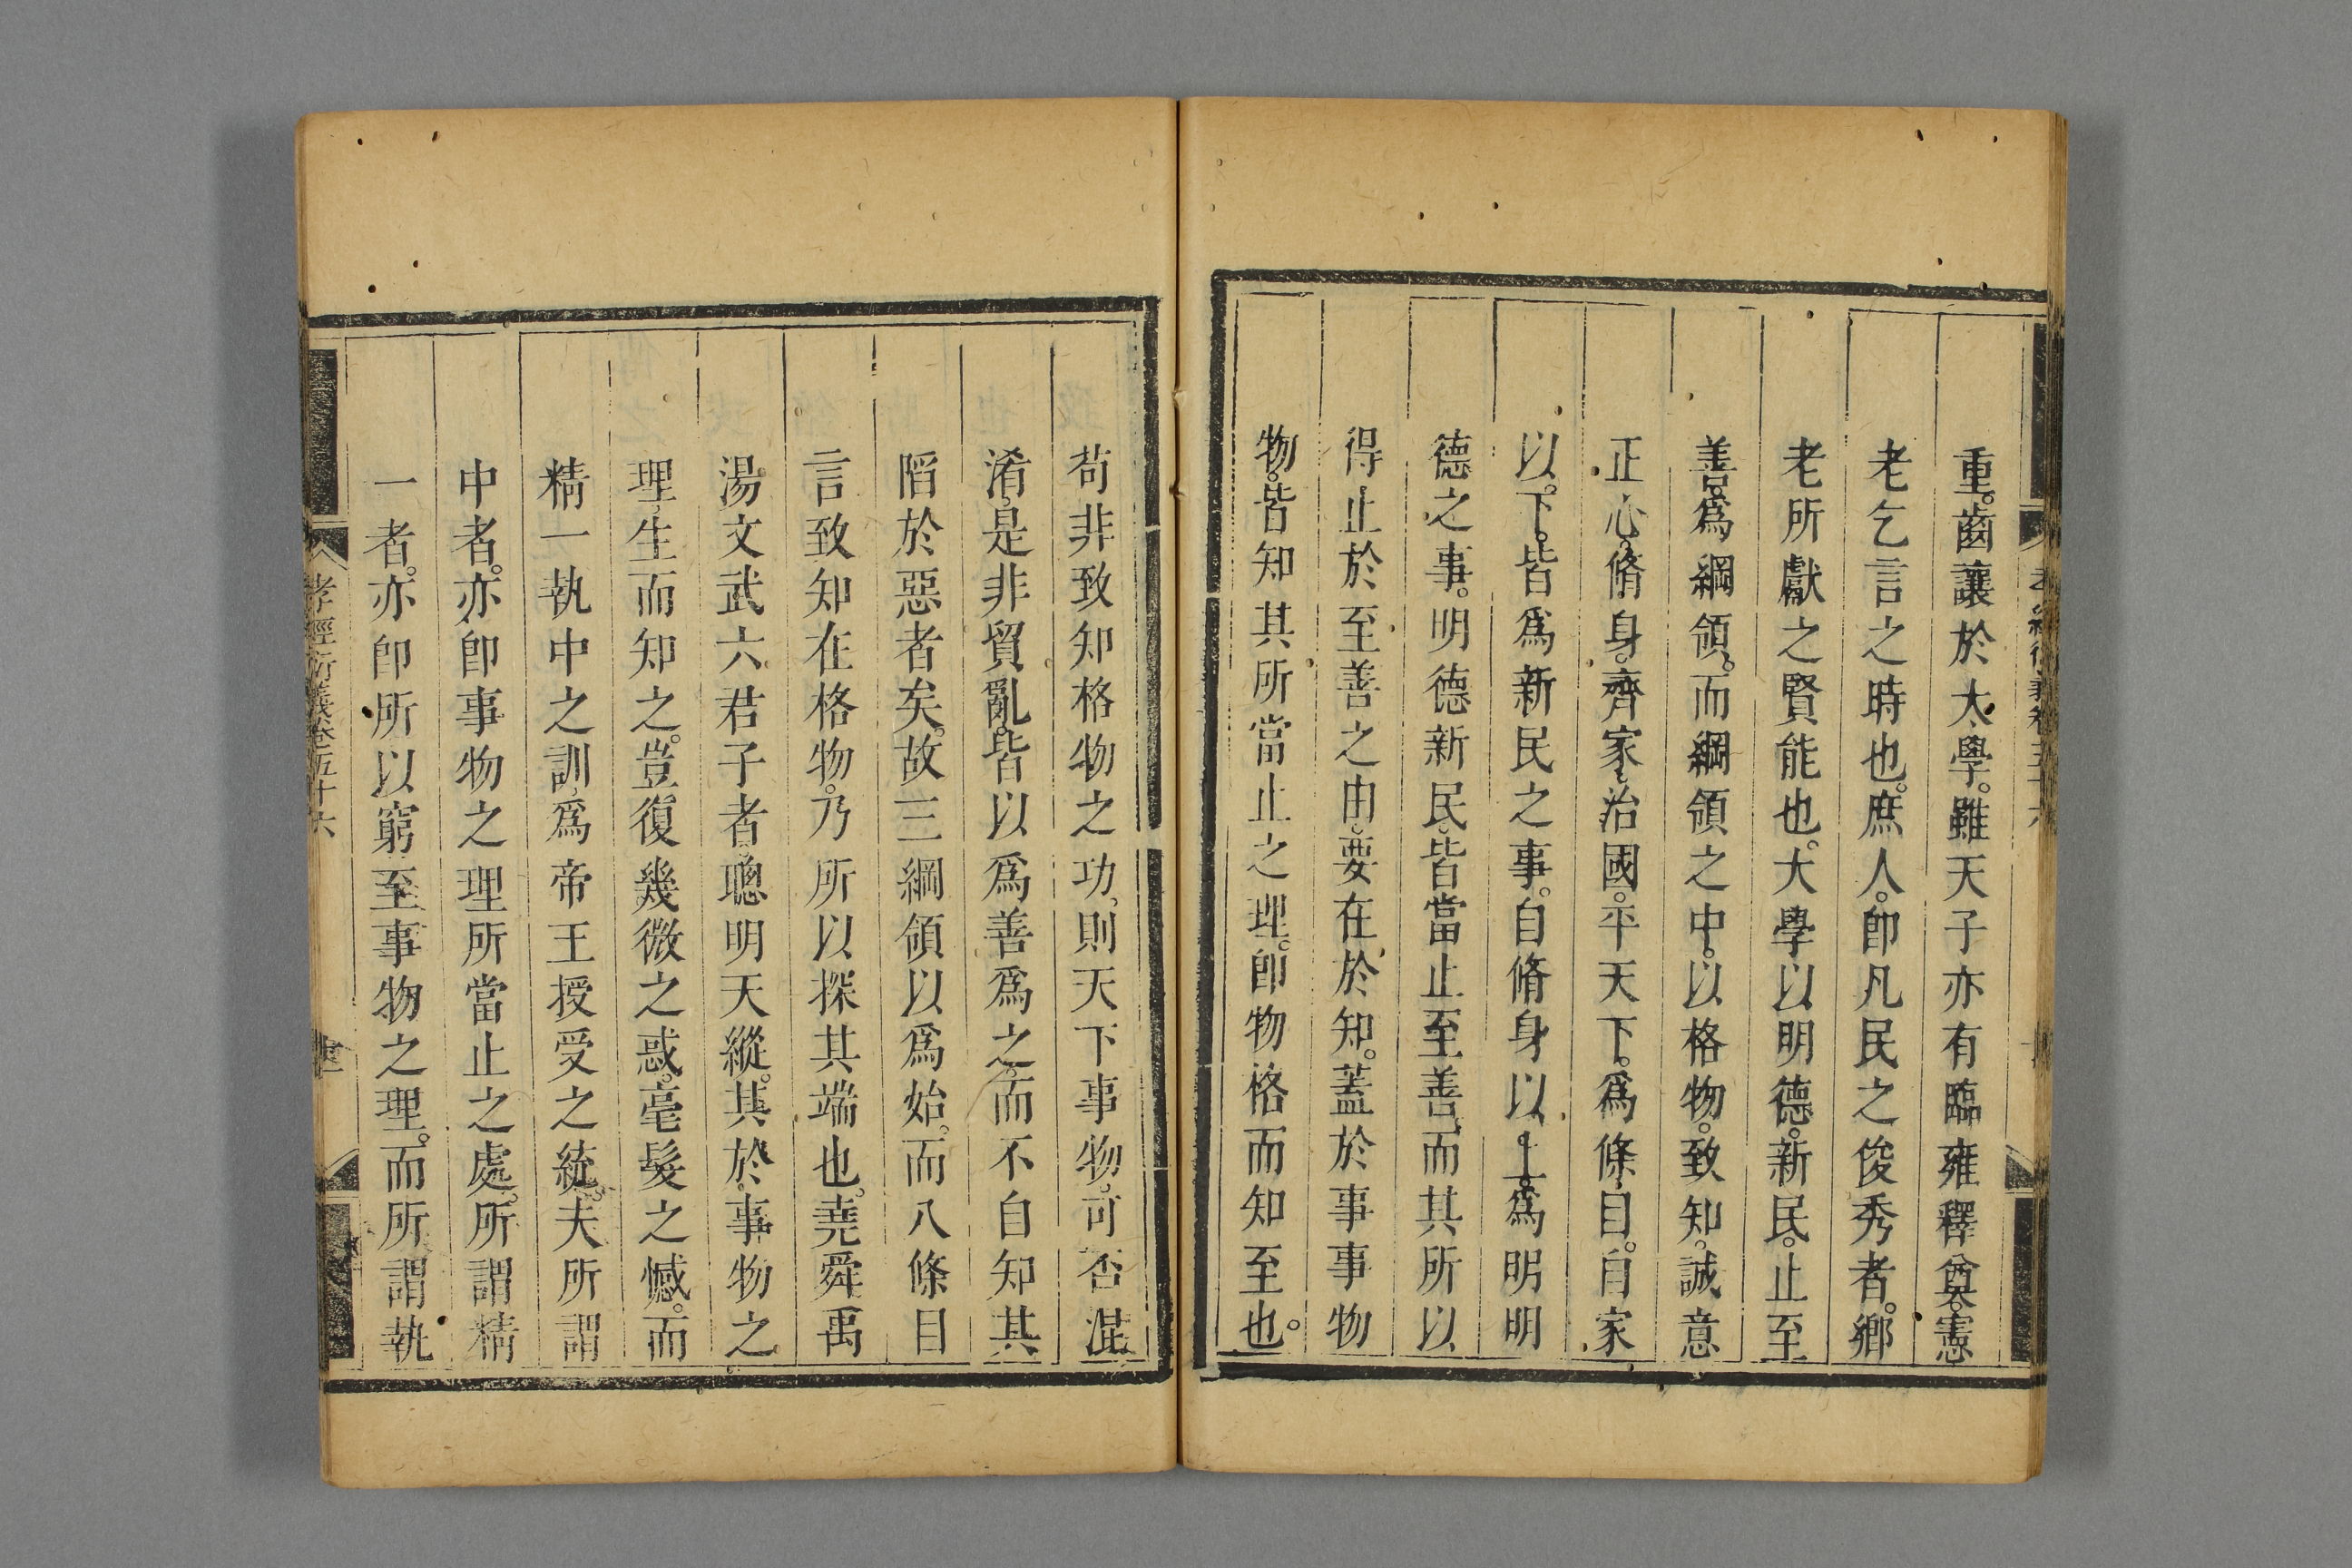 重。齒讓於大學。雖天子亦有臨雍釋奠。憲
老乞言之時也。庶人。卽凡民之俊秀者。鄉
老所獻之賢能也。大學以明德。新民。止至
善。爲綱領。而綱領之中。以格物。致知。誠意
正心。脩身。齊家。治國。平天下。爲條目。自家
以下。皆爲新民之事。自脩身以上。爲明明
德之事。明德新民。皆當止至善。而其所以
得止於至善之由。要在於知。蓋於事事物
物。皆知其所當止之理。卽物格而知至也。
苟非致知格物之功。則天下事物。可否混
淆。是非貿亂。皆以爲善爲之。而不自知其
陷於惡者矣。故三綱領以爲始。而八條目
言致知在格物。乃所以探其端也。堯舜禹
湯文武六君子者。聰明天縱。其於事物之
理。生而知之。豈復幾微之惑。毫髮之憾。而
精一執中之訓。爲帝王授受之統。夫所謂
中者。亦卽事物之理所當止之處。所謂精
一者。亦卽所以窮至事物之理。而所謂執
孝經衍義卷五十六